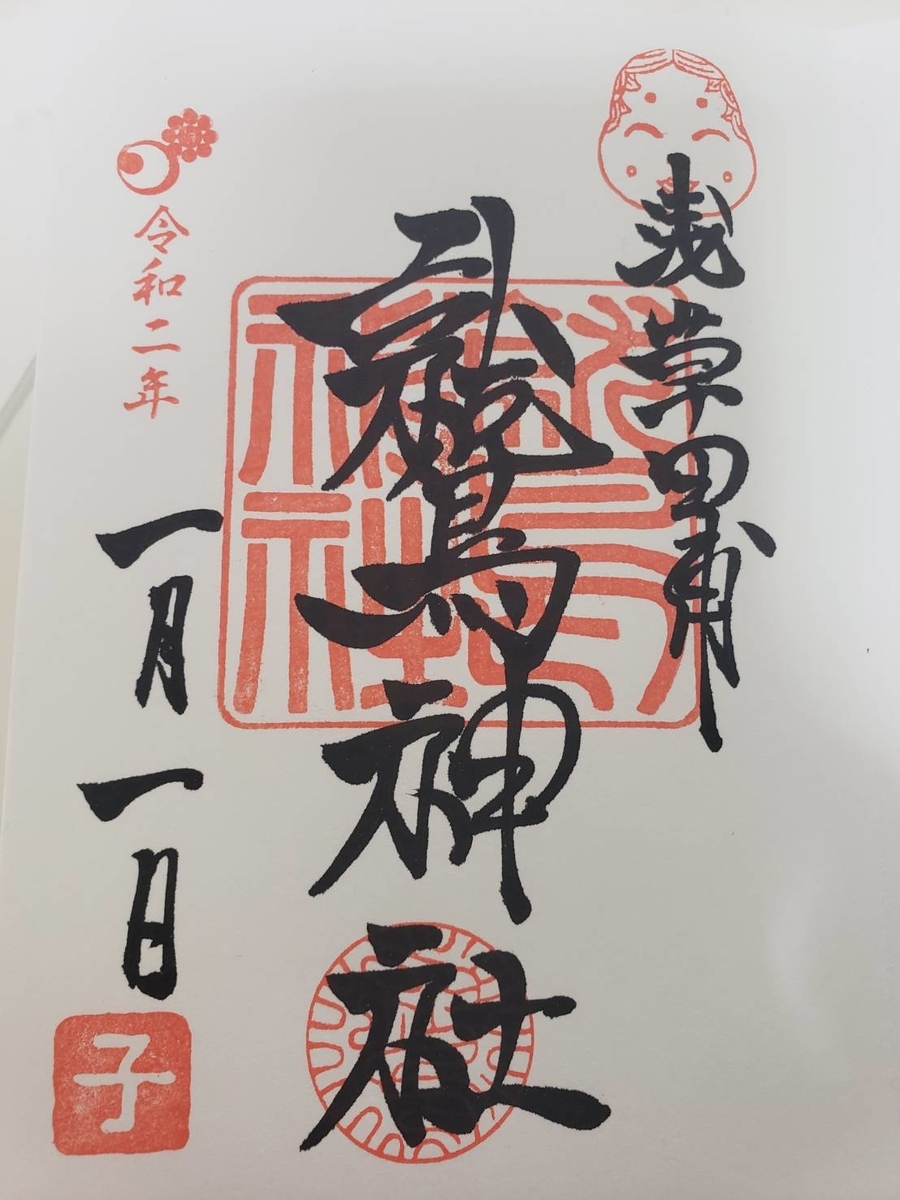 浅草田甫
鷲神社
令和二年
一月一日
子